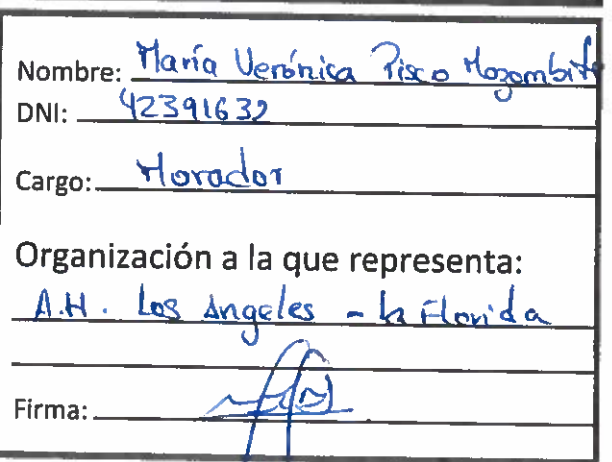 Nombre: María Verónica Pisco Mozombite
DNI: 42391632
Cargo: Morador
Organización a la que representa:
A.H. Los Angeles - la Florida
Firma: